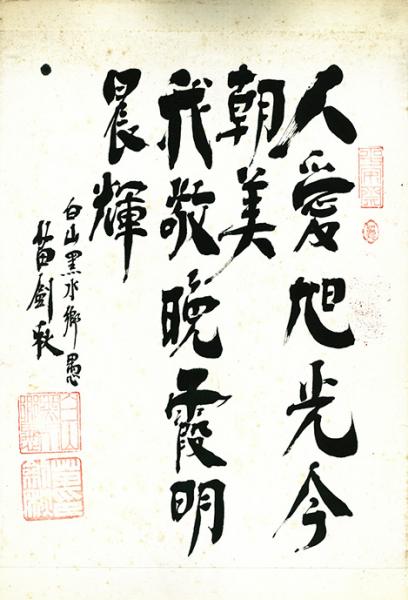 人愛旭光今
朝美
我敬晚霞明
晨輝
白山黑水鄉愚
劍秋